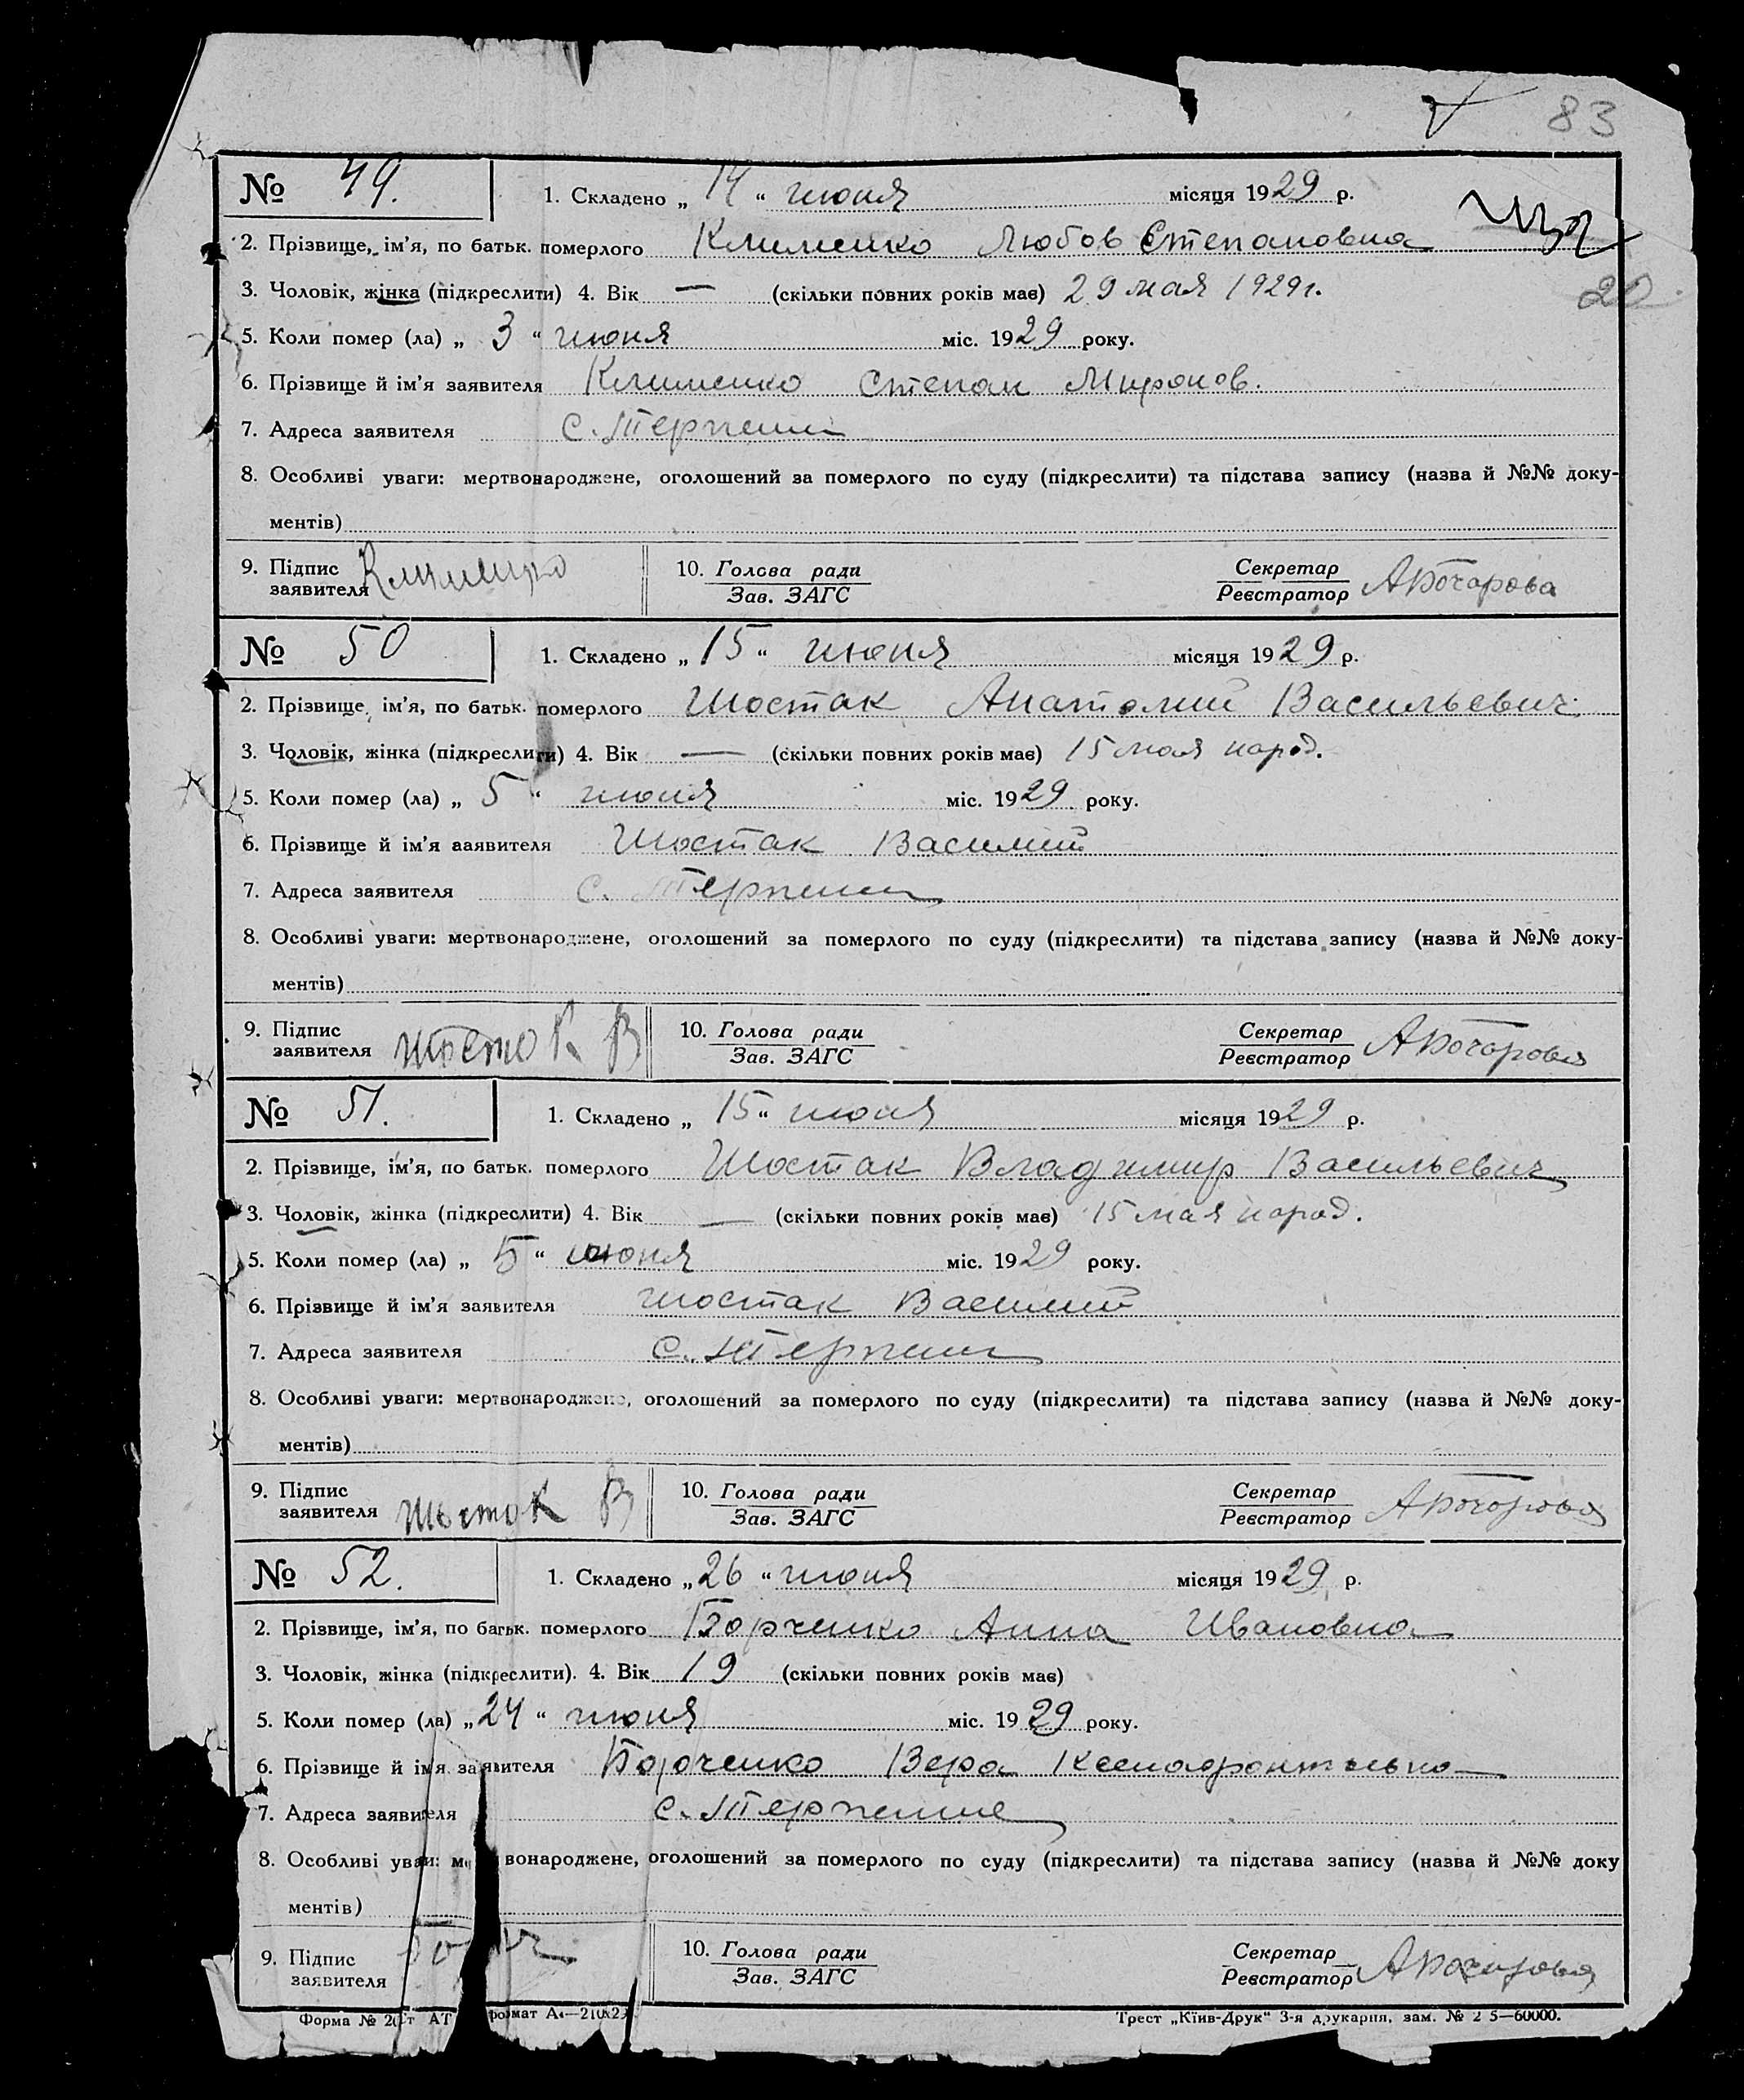 83
№ 49. 1. Складено „ 14 “ июня місяця 1929 р.
2. Прізвище, ім'я, по батьк. померлого Клименко Любов Степановна
3. Чоловік, жінка (підкреслити) 4. Вік — (скільки повних років має) 29 мая 1929 г.
20
5. Коли помер (ла) „ 3 “ июня міс. 1929 року.
6. Прізвище й ім'я заявителя Клименко Степан Миронов.
7. Адреса заявителя с. Терпение
8. Особливі уваги: мертвонароджене, оголошений за померлого по суду (підкреслити) та підстава запису (назва й №№ доку-
ментів)
9. Підпис заявителя Клименко 10. Голова ради Зав. ЗАГС Секретар Реєстратор АБочарова
№ 50 1. Складено „ 15 “ июня місяця 1929 р.
2. Прізвище, ім'я, по батьк. померлого Шостак Анатолий Васильевич
3. Чоловік, жінка (підкреслити) 4. Вік — (скільки повних років має) 15 мая народ.
5. Коли помер (ла) „ 5 “ июня міс. 1929 року.
6. Прізвище й ім'я заявителя Шостак Василий
7. Адреса заявителя с. Терпение
8. Особливі уваги: мертвонароджене, оголошений за померлого по суду (підкреслити) та підстава запису (назва й №№ доку-
ментів)
9. Підпис заявителя Шосток В 10. Голова ради Зав. ЗАГС Секретар Реєстратор АБочарова
№ 51. 1. Складено „ 15 “ июня місяця 1929 р.
2. Прізвище, ім'я, по батьк. померлого Шостак Владимир Васильевич
3. Чоловік, жінка (підкреслити) 4. Вік — (скільки повних років має) 15 мая народ.
5. Коли помер (ла) „ 5 “ июня міс. 1929 року.
6. Прізвище й ім'я заявителя Шостак Василий
7. Адреса заявителя с. Терпение
8. Особливі уваги: мертвонароджене, оголошений за померлого по суду (підкреслити) та підстава запису (назва й №№ доку-
ментів)
9. Підпис заявителя Шосток В 10. Голова ради Зав. ЗАГС Секретар Реєстратор АБочарова
№ 52. 1. Складено „ 26 “ июня місяця 1929 р.
2. Прізвище, ім'я, по батьк. померлого Борченко Анна Ивановна
3. Чоловік, жінка (підкреслити). 4. Вік 19 (скільки повних років має)
5. Коли помер (ла) „ 24 “ июня міс. 1929 року.
6. Прізвище й ім'я заявителя Борченко Вера
7. Адреса заявителя с. Терпение
8. Особливі уваги: вонароджене, оголошений за померлого по суду (підкреслити) та підстава запису (назва й №№ доку
ментів)
9. Підпис заявителя 10. Голова ради Зав. ЗАГС Секретар Реєстратор АБочарова
Форма № Трест „Київ-Друк“ 3-я друкарня, зам. № 2 5—60000.